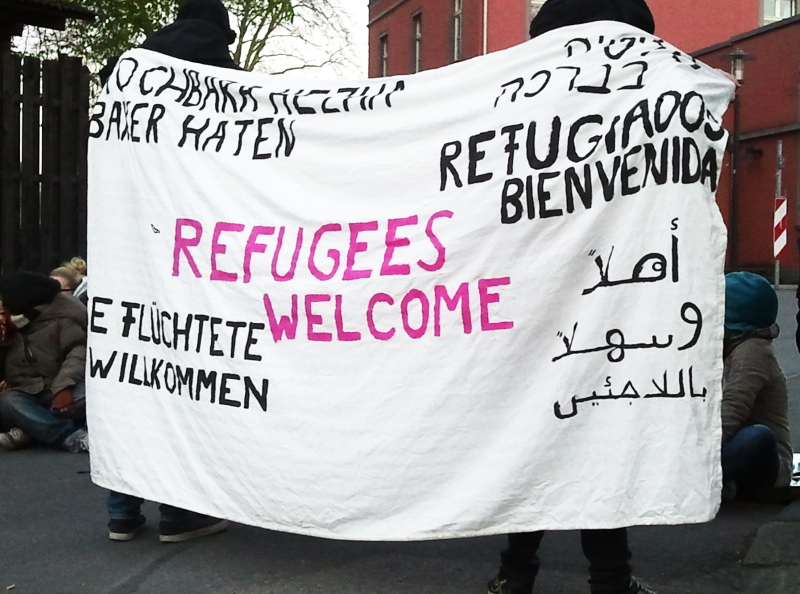 BAXER HATEN
בברכה
REFUGIADOS
BIENVENIDA
REFUGEES
WELCOME
E FLÜCHTETE
WILLKOMMEN
أهلاً
وسهلاً
باللاجئين